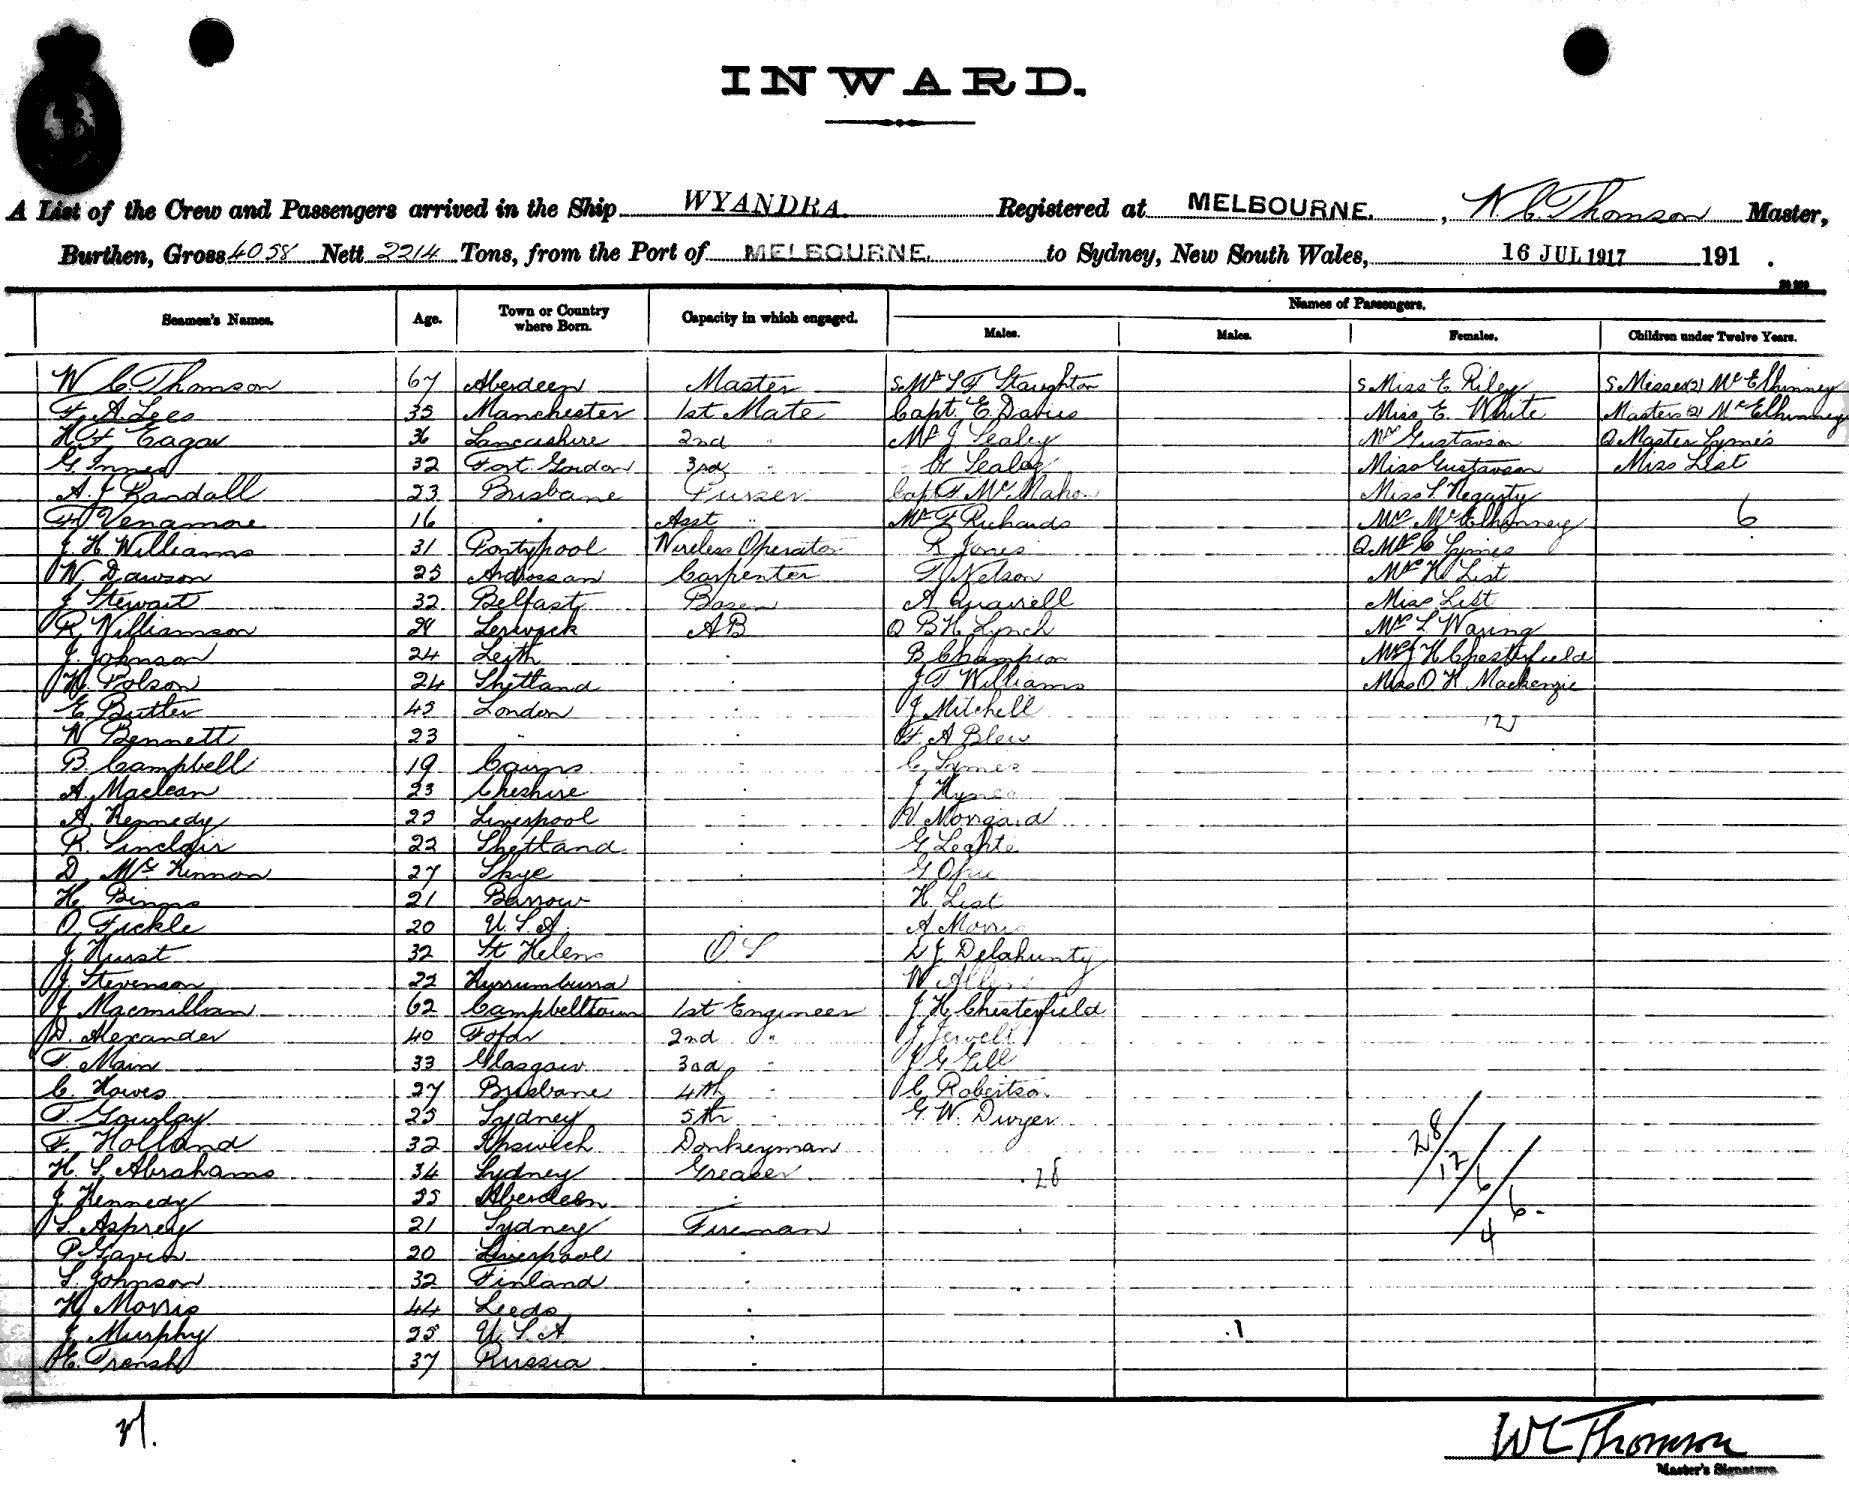 INWARD.
A List of the Crew and Passengers arrived in the Ship WYANDRA. Registered at MELBOURNE. , W C Thomson Master,
Burthen, Gross 4058 Nett 2214 Tons, from the Port of MELBOURNE. to Sydney, New South Wales, 16 JUL 1917 191 .
Names of Passengers.
Seamen's Names. Age. Town or Country where Born. Capacity in which engaged. Males. Males. Females. Children under Twelve Years.
W C. Thomson 67 Aberdeen Master S Mr S F Staughton S Miss E Riley S Misses (2) McElhinney
F. A Lees 35 Manchester 1st Mate Capt. E. Davies Miss E. White Masters (2) McElhinney
H F Eagar 36 Lancashire 2nd " Mr J Sealey Mrs Gustavson Q Master Symes
G. Innes 32 Fort Gordon 3rd " Sealey Miss Gustavson Miss List
A. J Randall 23 Brisbane Purser Capt F McMahon Miss S. Hegarty
F Venamore 16 " Asst " Mr F Richards Mrs McElhinney 6
J H Williams 31 Pontypool Wireless Operator R Jones Q Mrs C Symes
W. Dawson 25 Ardrossan Carpenter F Nelson Mrs H List
J Stewart 32 Belfast Bosen A Quarrell Miss List
R. Williamson 29 Lerwick AB Q B H Lynch Mrs L Waring
J. Johnson 24 Leith " B Champion Mrs J H Chesterfield
H. Polson 24 Shetland " J T Williams Miss O H Mackenzie
E Butler 43 London " J Mitchell 12
W Bennett 23 " " F. A Blew
B. Campbell 19 Cairns " C James
A. Maclean 23 Cheshire " J Hynes
A. Kennedy 22 Liverpool " Morgard
R. Sinclair 22 Shetland " G Leghte
D. McKinnon 27 Skye " G Opie
H. Binns 21 Barrow " H. List
O. Fickle 20 U. S. A. " A Morris
J Hurst 32 St Helens O S L J. Delahunty
J. Stevenson 22 Kurrumburra " W
J Macmillan 62 Campbelltown 1st Engineer J H. Chesterfield
D. Alexander 40 2nd " J Jewell
T. Main 33 Glasgow 3rd " J G Gill
C. Howes 27 Brisbane 4th " C Robertson
T. Gourlay 23 Sydney 5th " G. W. Dwyer
F. Holland 32 Ipswich Donkeyman 28/
H. S. Abrahams 34 Sydney Greaser 28 12/
J. Kennedy 25 Aberdeen " 6/ 6.
S. Asprey 21 Sydney Fireman 4
P. Gavin 20 Liverpool "
S. Johnson 32 Finland "
H. Morris 44 Leeds "
J. Murphy 25 U. S. A " 1
E. Transk 37 Russia "
37.
W C Thomson
Master's Signature.